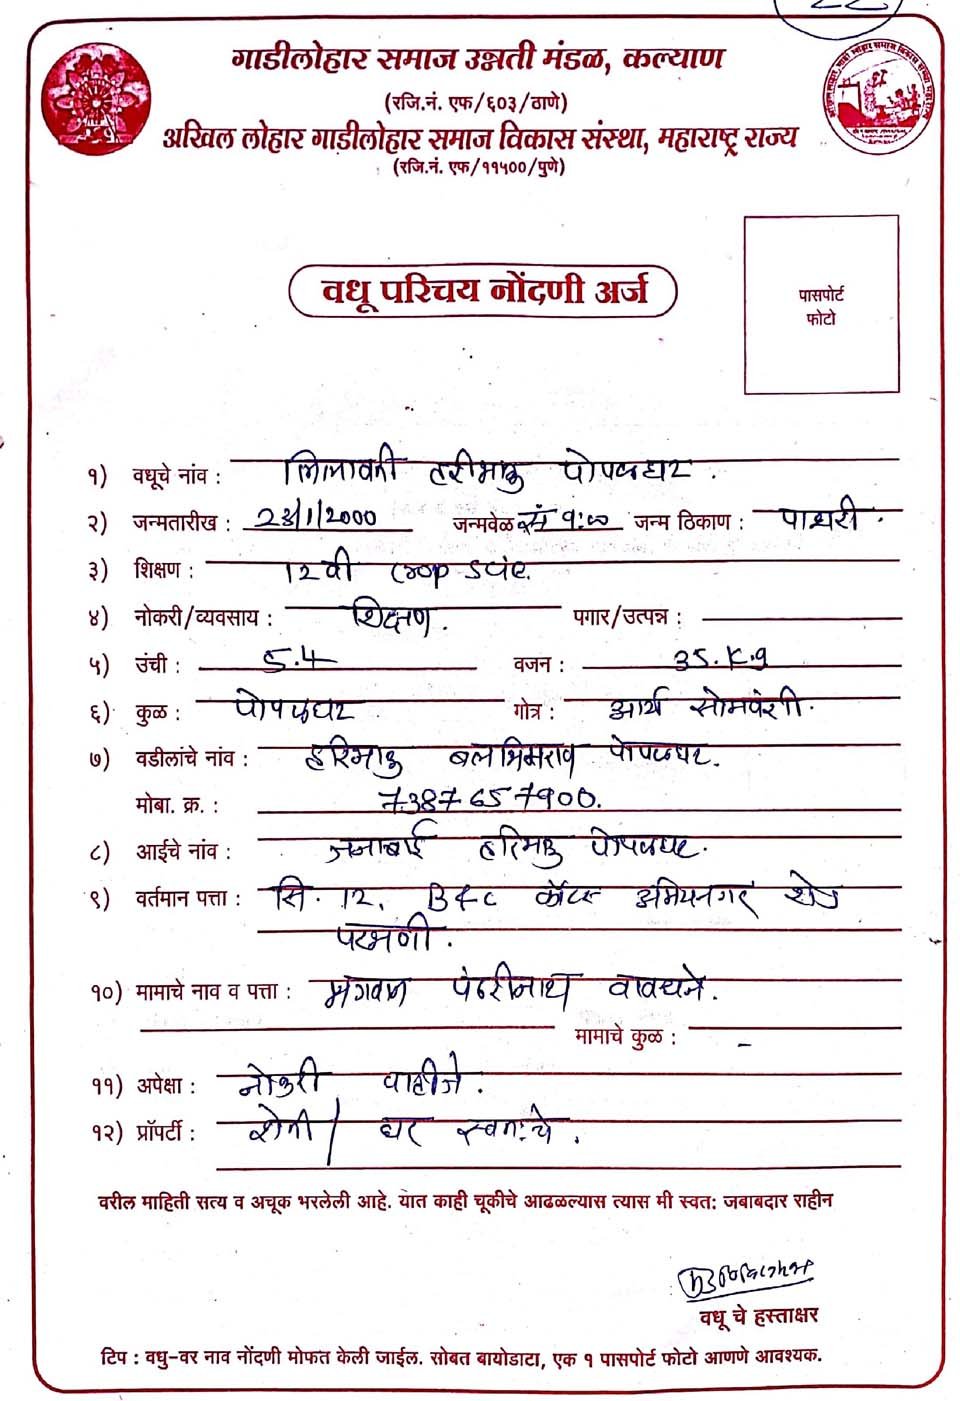 गाडीलोहार समाज उन्नती मंडळ, कल्याण
(रजि.नं. एफ/६०३/ठाणे)
अखिल लोहार गाडीलोहार समाज विकास संस्था, महाराष्ट्र राज्य
(रजि.नं. एफ/११५००/पुणे)
पासपोर्ट
फोटो
वधू परिचय नोंदणी अर्ज
१) वधूचे नांव : हरीभाऊ पोपळघट
२) जन्मतारीख : जन्मवेळ जन्म ठिकाण : पाथरी.
३) शिक्षण : 12 वी crop
४) नोकरी/व्यवसाय : शिक्षण. पगार/उत्पन्न :
५) उंची : 5.4 वजन : 35.K.g
६) कुळ : पोपळघट गोत्र : आर्य सोमवंशी.
७) वडीलांचे नांव : हरिभाऊ बलभिमराव पोपळघट.
मोबा. क्र. : 7387657900.
८) आईचे नांव : जनाबाई हरिभाऊ पोपळघट.
९) वर्तमान पत्ता : सि. 12.
परभणी.
१०) मामाचे नाव व पत्ता : पंढरीनाथ
मामाचे कुळ : -
११) अपेक्षा : नोकरी पाहीजे.
१२) प्रॉपर्टी : शेती / घर स्वतःचे.
वरील माहिती सत्य व अचूक भरलेली आहे. यात काही चूकीचे आढळल्यास त्यास मी स्वत: जबाबदार राहीन
वधू चे हस्ताक्षर
टिप : वधु-वर नाव नोंदणी मोफत केली जाईल. सोबत बायोडाटा, एक १ पासपोर्ट फोटो आणणे आवश्यक.